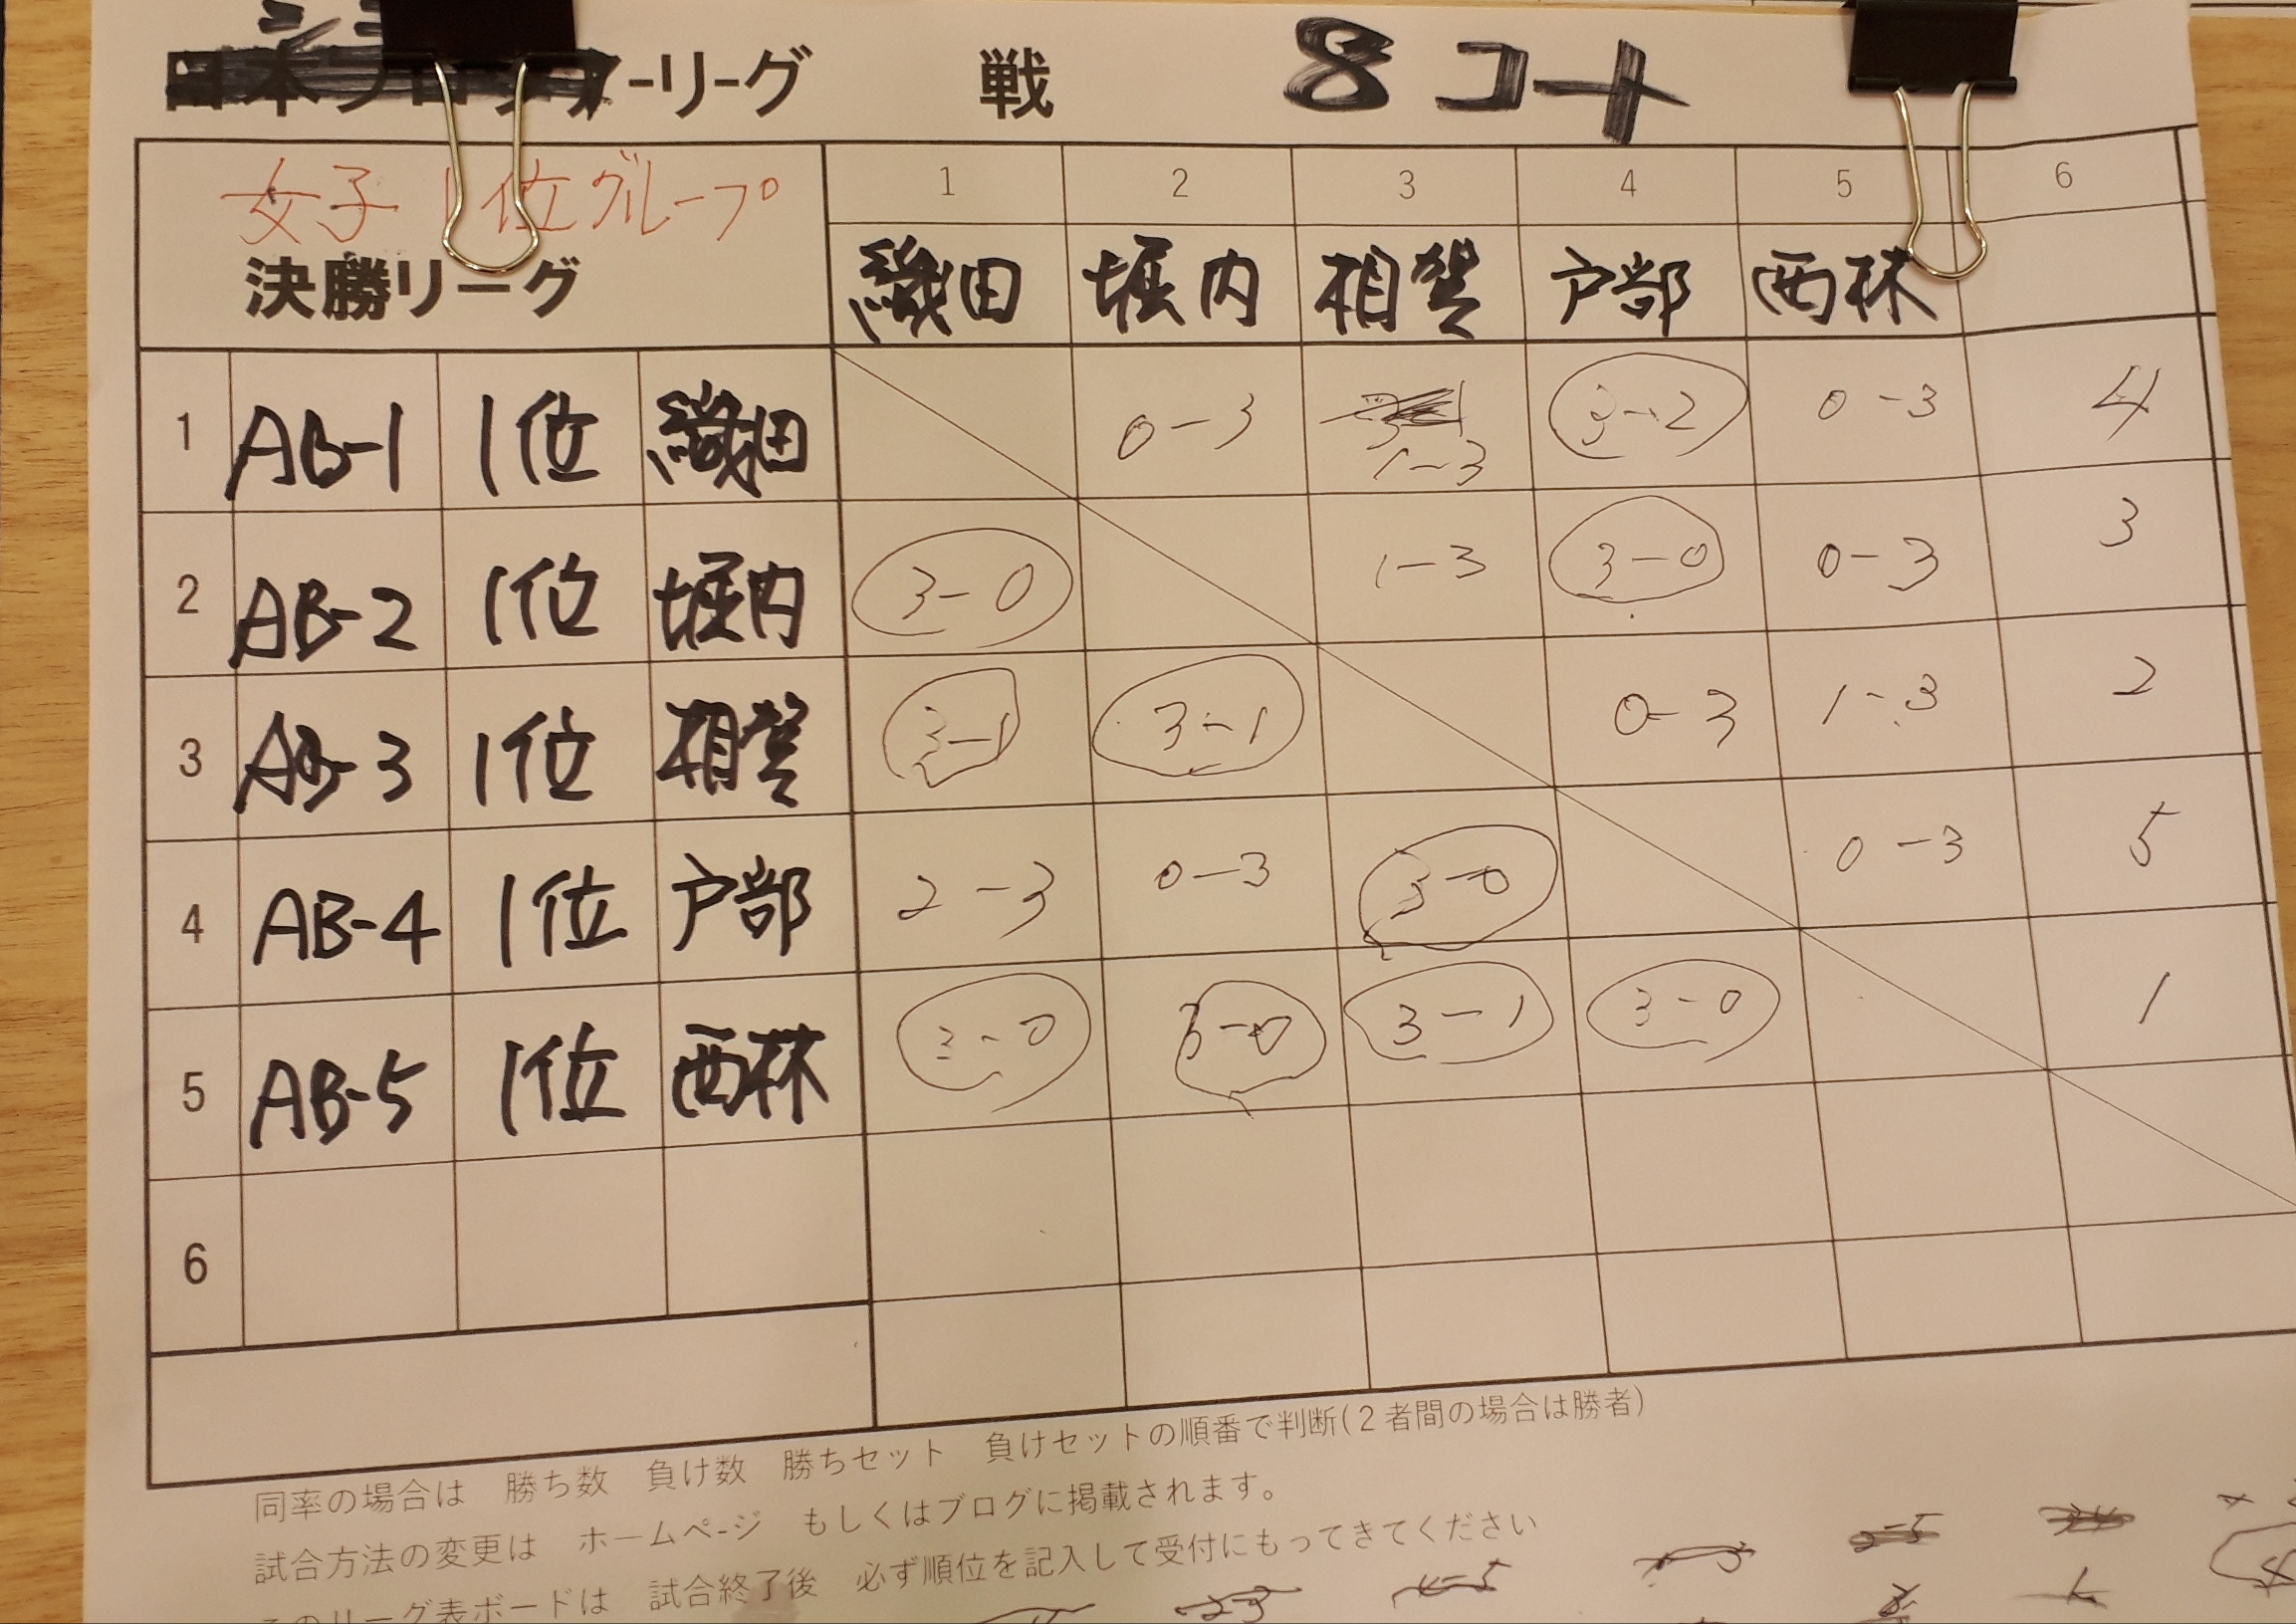 ーリーグ 戦 8コート
女子1位グループ
決勝リーグ
1 2 3 4 5 6
織田 堀内 相賀 戸部 西林
1 AB-1 1位 織田 0-3 1-3 3-2 0-3 4
2 AB-2 1位 堀内 3-0 1-3 3-0 0-3 3
3 AB-3 1位 相賀 3-1 3-1 0-3 1-3 2
4 AB-4 1位 戸部 2-3 0-3 3-0 0-3 5
5 AB-5 1位 西林 3-0 3-0 3-1 3-0 1
6
同率の場合は 勝ち数 負け数 勝ちセット 負けセットの順番で判断(2者間の場合は勝者)
試合方法の変更は ホームページ もしくはブログに掲載されます。
このリーグ表ボードは 試合終了後 必ず順位を記入して受付にもってきてください